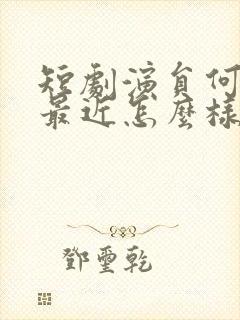 短劇演員何
最近怎麼樣
鄧璽乾